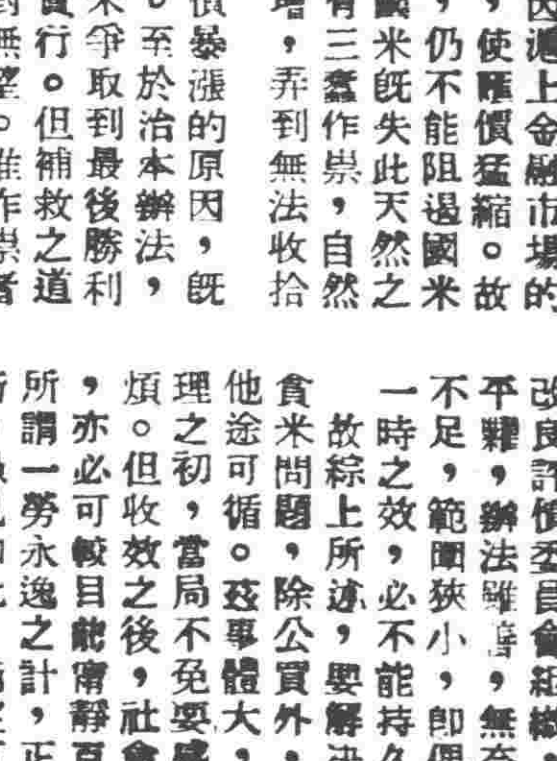 因遏上金融市場的
，使匯價猛縮。故
，仍不能阻遏國米
國米旣失此天然之
有三蠹作祟，自然
增，弄到無法收拾
價暴漲的原因，旣
。至於治本辦法，
爭取到最後勝利
實行。但補救之道
到無望。惟作祟者
改良評價委員會組織
平糶，辦法雖善，無奈
不足，範圍狹小，卽偶
一時之效，必不能持久
故綜上所述，要解決
食米問題，除公買外，
他途可循。茲事體大，
理之初，當局不免要感
煩。但收效之後，社會
，亦必可較目前甯靜
所謂一勞永逸之計，正